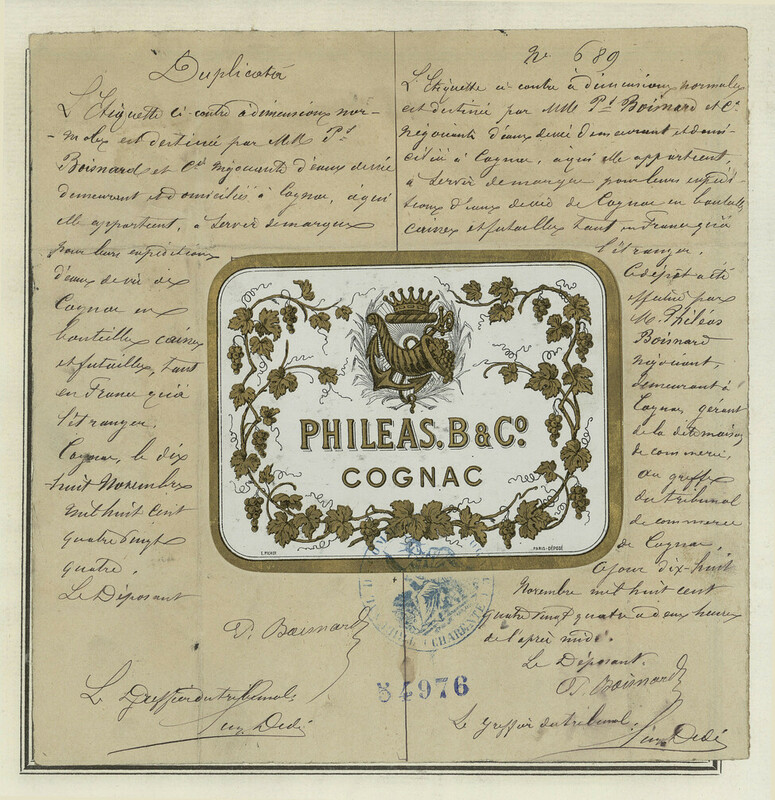 Duplicata
L'Etiquette ci-contre à dimensions nor-
-males est destinée par MM Ps
Boisnard et Cie négociants d'eaux de vie
demeurant et domiciliés à Cognac, à qui
elle appartient, à servir de marque
pour leurs expéditions
d'eaux de vie de
Cognac en
bouteilles caisses
et futailles, tant
en France qu'à
l'étranger.
Cognac, le dix
huit Novembre
mil huit cent
quatre vingt
quatre.
Le Déposant
P. Boisnard
Le Greffier du tribunal
No 689
L'Etiquette ci-contre à dimensions normales
est destinée par MM Ps Boisnard et Cie
négociants d'eaux de vie demeurant et domi-
ciliés à Cognac, à qui elle appartient,
à servir de marque pour leurs expédi-
tions d'eaux de vie de Cognac en bouteilles
caisses et futailles tant en France qu'à
l'étranger.
Ce dépôt a été
effectué par
M. Philéas
Boisnard
négociant,
demeurant à
Cognac, gérant
de la dite maison
de commerce,
au greffe
du tribunal
de commerce
de Cognac,
Ce jour dix-huit
Novembre mil huit cent
quatre vingt quatre à deux heures
de l'après midi.
Le Déposant.
P. Boisnard
Le Greffier du tribunal
PHILEAS. B & Co.
COGNAC
PARIS-DÉPOSÉ
CHARENTE
54976